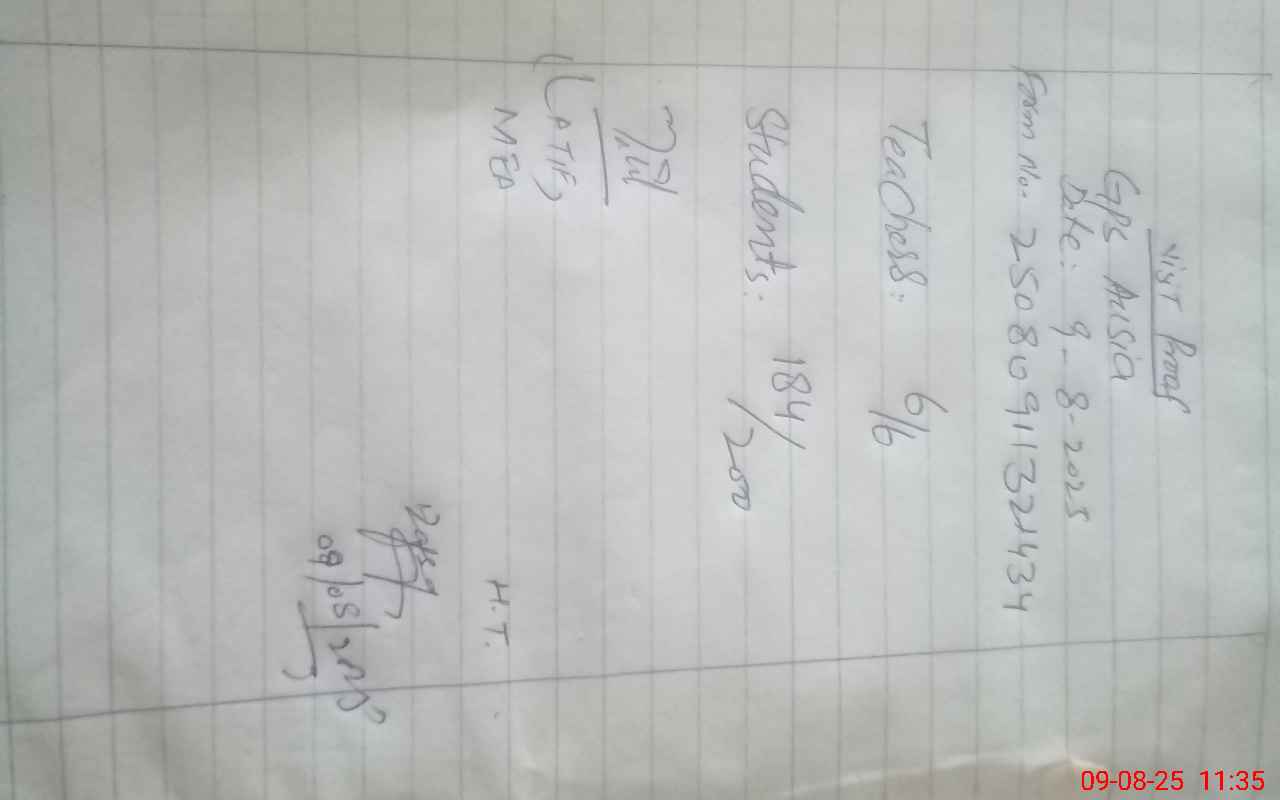 Visit Proof
GPS Ausia
Date: 9-8-2025
Form No. 25080911321434
Teachers: 6/6
Students: 184/200
(LATIF)
MEA
H.T.
09/08/2025
09-08-25 11:35